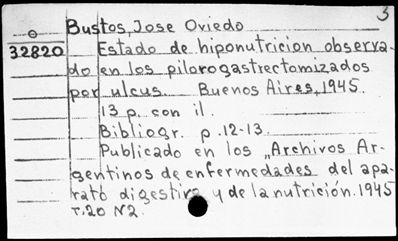 3
Bustos, Jose Oviedo
32820 Estado de hiponutricion observa-
do en los pilorogastrectomizados
por ulcus. Buenos Aires, 1945.
13 p. con il.
Bibliogr. p. 12-13.
Publicado en los „Archivos Ar-
gentinos de enfermedades del apa-
rato digestivo y de la nutrición. 1945
T:20 N2.